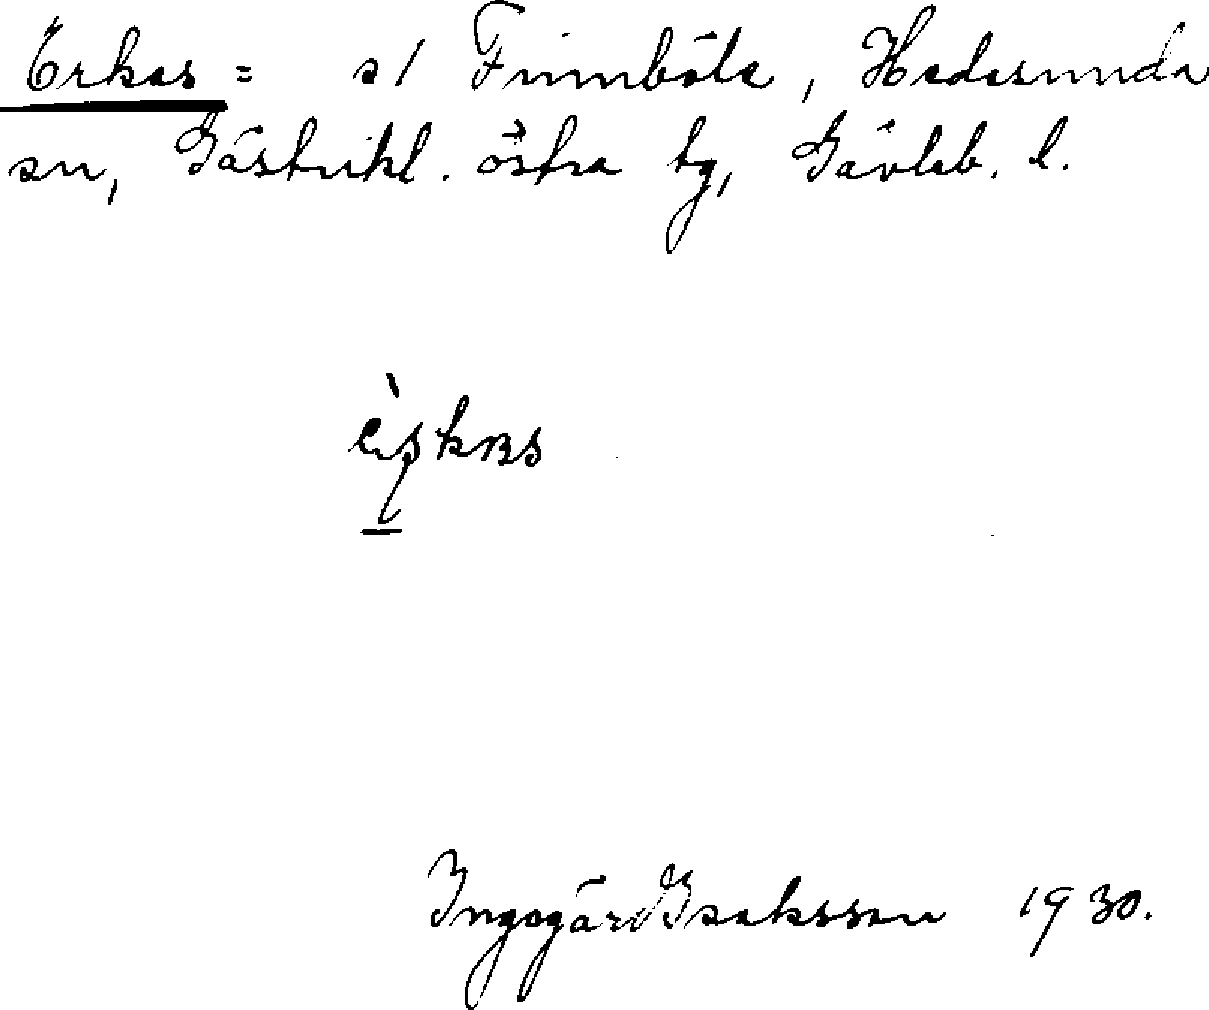 Erkas = s/ Finnböle, Hedesunda
sn, Gästrikl. östra tg, Gävleb. l.
Ingegärd Isaksson 1930.